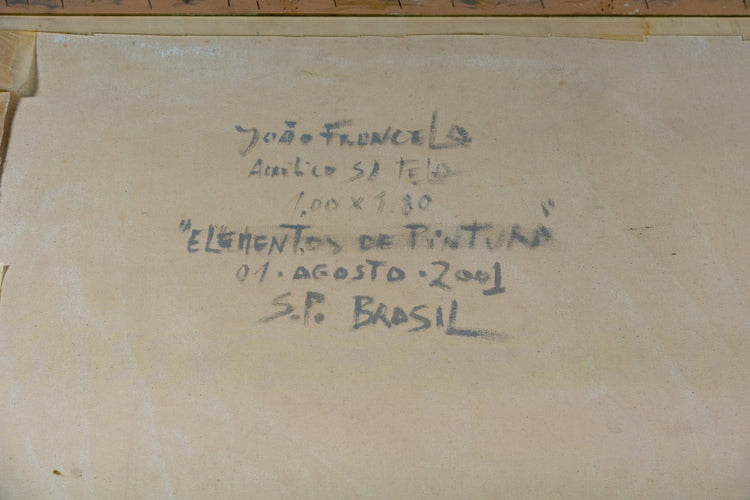 João FRANCELA
Acrílico S/ TELA
1.00 X 1.80
"ELEMENTOS DE PINTURA"
01. AGOSTO. 2001
S.P. BRASIL